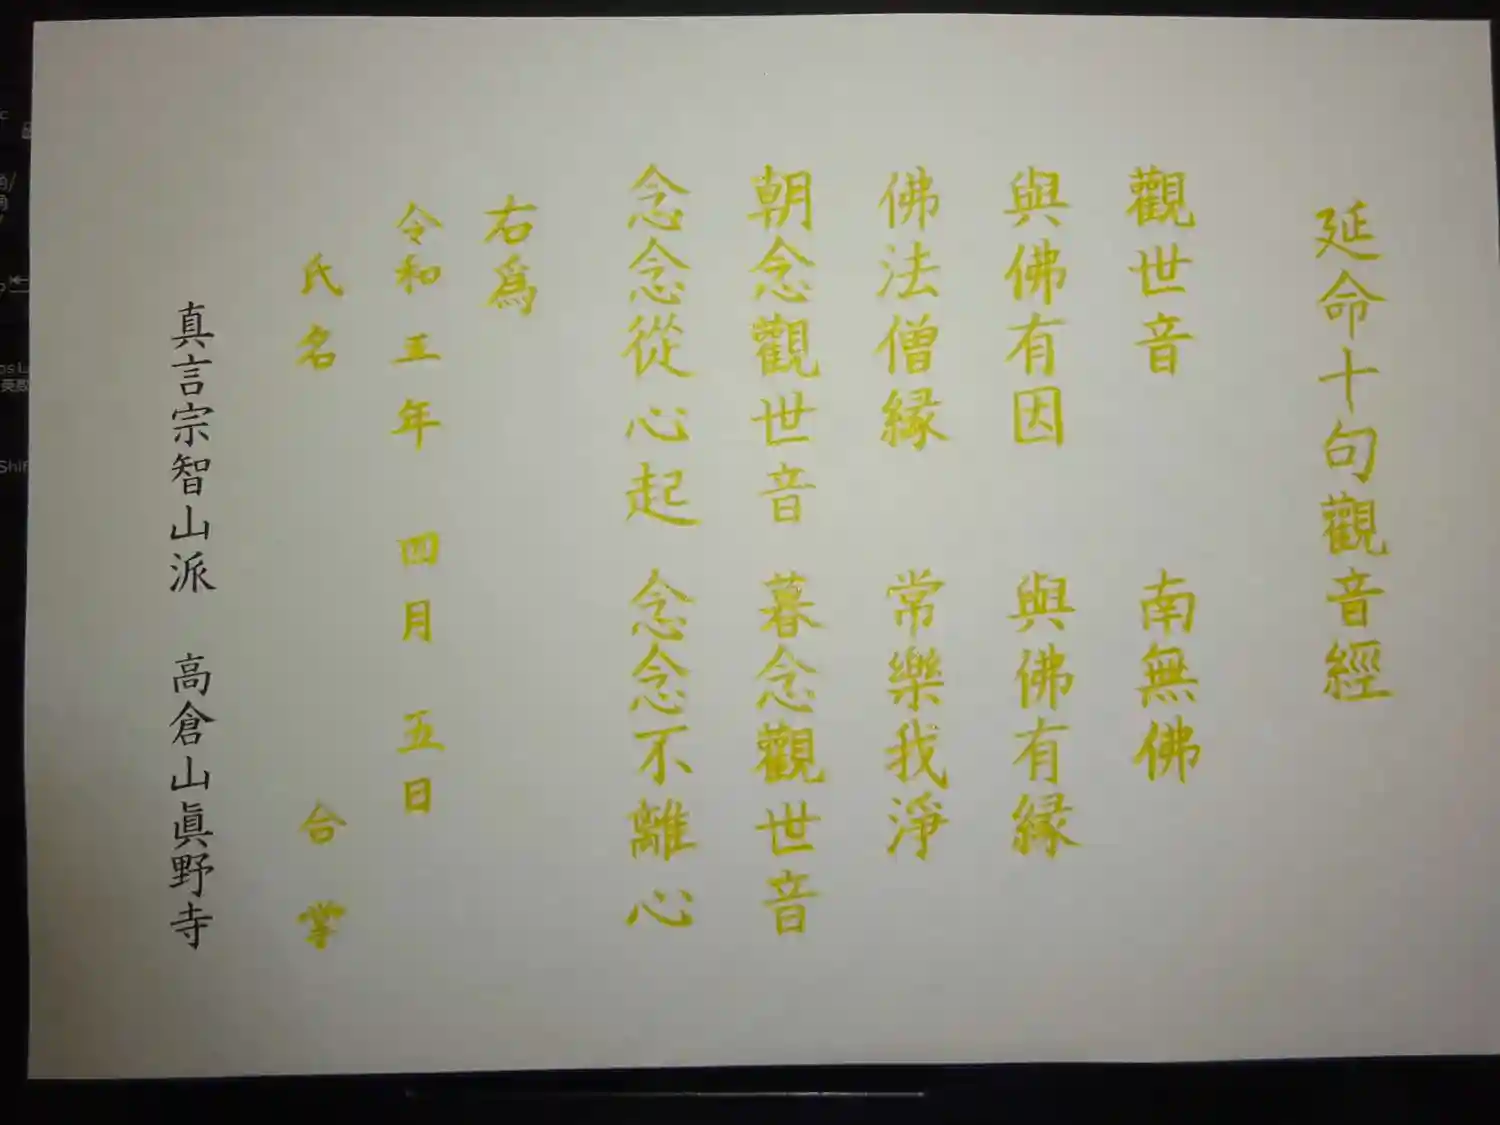 延命十句觀音經
觀世音　南無佛
與佛有因　與佛有縁
佛法僧縁　常樂我淨
朝念觀世音　暮念觀世音
念念從心起　念念不離心
右爲
令和　年　四月　五日
氏名　合掌
真言宗智山派　高倉山眞野寺